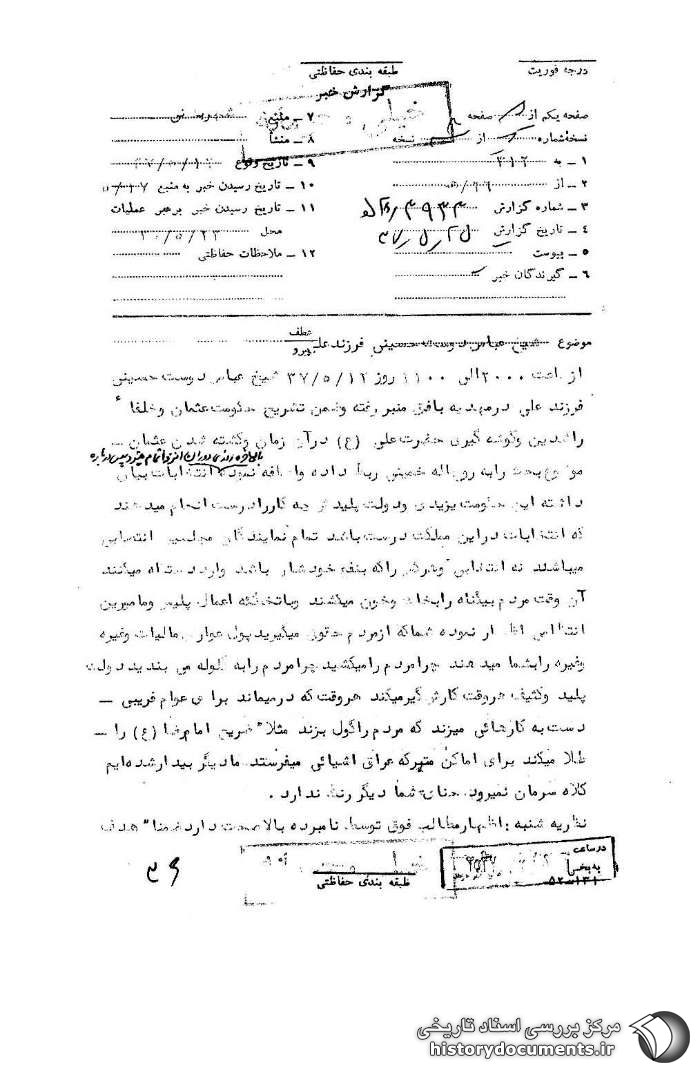 درجه فوریت
طبقه بندی حفاظتی
گزارش خبر
خیلی محرمانه
صفحه یکم از صفحه
نسخه شماره از نسخه
۱ ـ به ۳۱۲
۲ ـ از
۳ ـ شماره گزارش
۴ ـ تاریخ گزارش ۳۷/۵/۲۵
۵ ـ پیوست
۶ ـ گیرندگان خبر
۷ ـ منبع
۸ ـ منشأ
۹ ـ تاریخ وقوع
۱۰ ـ تاریخ رسیدن خبر به منبع
۱۱ ـ تاریخ رسیدن خبر برهبر عملیات
محل
۱۲ ـ ملاحظات حفاظتی
موضوع شیخ عباس دوست حسینی فرزند علی
عطف
پیرو
از ساعت ۲۰۰۰ الی ۱۱۰۰ روز ۳۷/۵/۱۲ شیخ عباس دوست حسینی
فرزند علی درمهدیه بافق منبر رفته وضمن تشریح حکومت عثمان وخلفاء
راشدین وگوشه گیری حضرت علی (ع) درآن زمان وکشته شدن عثمان ـ
موضوع بحث رابه روح اله خمینی ربط داده واضافه نموده انتخابات بیان
داشته این حکومت یزیدی ودولت پلید هر چه کار نادرست انجام میدهند
که انتخابات دراین مملکت درست باشد تمام نمایندگان مجلس انتصابی
میباشند نه انتخابی وهرکس راکه بنفع خودشان باشد وارد دستگاه میکنند
آن وقت مردم بیگناه رابخاک وخون میکشند وباتخطئه اعمال پلیس ومامورین
انتظامی اظهار نموده شماکه ازمردم حقوق میگیرید پول عوارض مالیات وغیره
وغیره رابشما میدهند چرا مردم رامیکشید چرامردم رابه گلوله می بندید دولت
پلید وکثیف هروقت کارش گیرمیکند هروقت که درمیماند برای عوام فریبی ـ
دست به کارهائی میزند که مردم راگول بزند مثلاً ضریح امام رضا (ع) را ـ
طلا میکند برای اماکن متبرکه عراق اشیائی میفرستد مادیگر بیدار شده ایم
کلاه سرمان نمیرود حنای شما دیگر رنگ ندارد .
نظریه شنبه : اظهارمطالب فوق توسط نامبرده بالاصحت دارد ضمناً هدف
در ساعت
به بخش
۵۲ـ۱۳۱
طبقه بندی حفاظتی
۳۶
مرکز بررسی اسناد تاریخی
historydocuments.ir